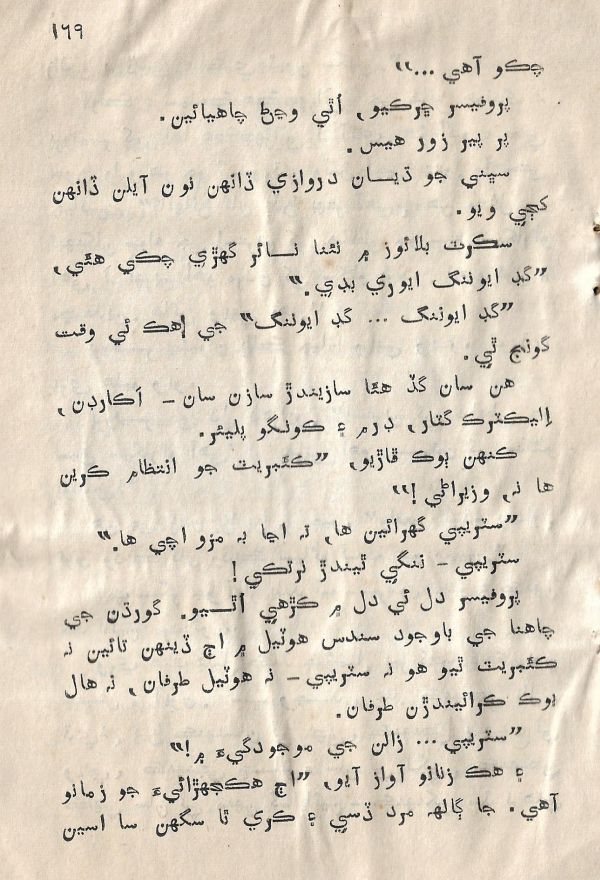 ١٦٩
چڪو آهي ...“
پروفيسر ڇرڪيو، اُٿي وڃڻ چاهيائين.
پر پير زور هيس.
سڀني جو ڌيـان دروازي ڏانهن نون آيلن ڏانهن
کڄي ويو.
سڪرٽ بلائوز ۾ نئنا نـائر گهڙي چڪي هئي،
”گڊ ايوننگ ايوري بڊي.“
”گڊ ايوننگ ... گڊ ايوننگ“ جي اِهڪ ئي وقت
گونج ٿي.
هن سان گڏ هئا سازيندڙ سازن سان – اَڪارڊن،
اِليڪٽرڪ گٽار، ڊرم ۽ ڪونگو پليئر.
ڪنهن ٻوڪ ڦاڙيو، ”ڪئبريٽ جو انتظام ڪرين
ها نه، وزيراڻي !“
”سٽريپي گهرائين ها، ته اڃا به مزو اچي ها.“
سٽريپي – ننگي ٿيندڙ نرتڪي !
پروفيسر دل ئي دل ۾ ڪڙهي اُٿـيو. گورڌن جي
چاهنا جي باوجود سندس هوٽيل ۾ اڄ ڏينهن تائين نه
ڪئبريٽ ٿيو هو نه سٽريپي – نه هوٽيل طرفان، نه هال
ٻوڪ ڪرائيندڙن طرفان.
”سٽريپي... زالن جي موجودگيءَ ۾!“
۽ هڪ زنانو آواز آيو، ”اڄ هڪجهڙائيءَ جو زمانو
آهي. جا ڳالهه مرد ڏسي ۽ ڪري ٿا سگهن سا اسين